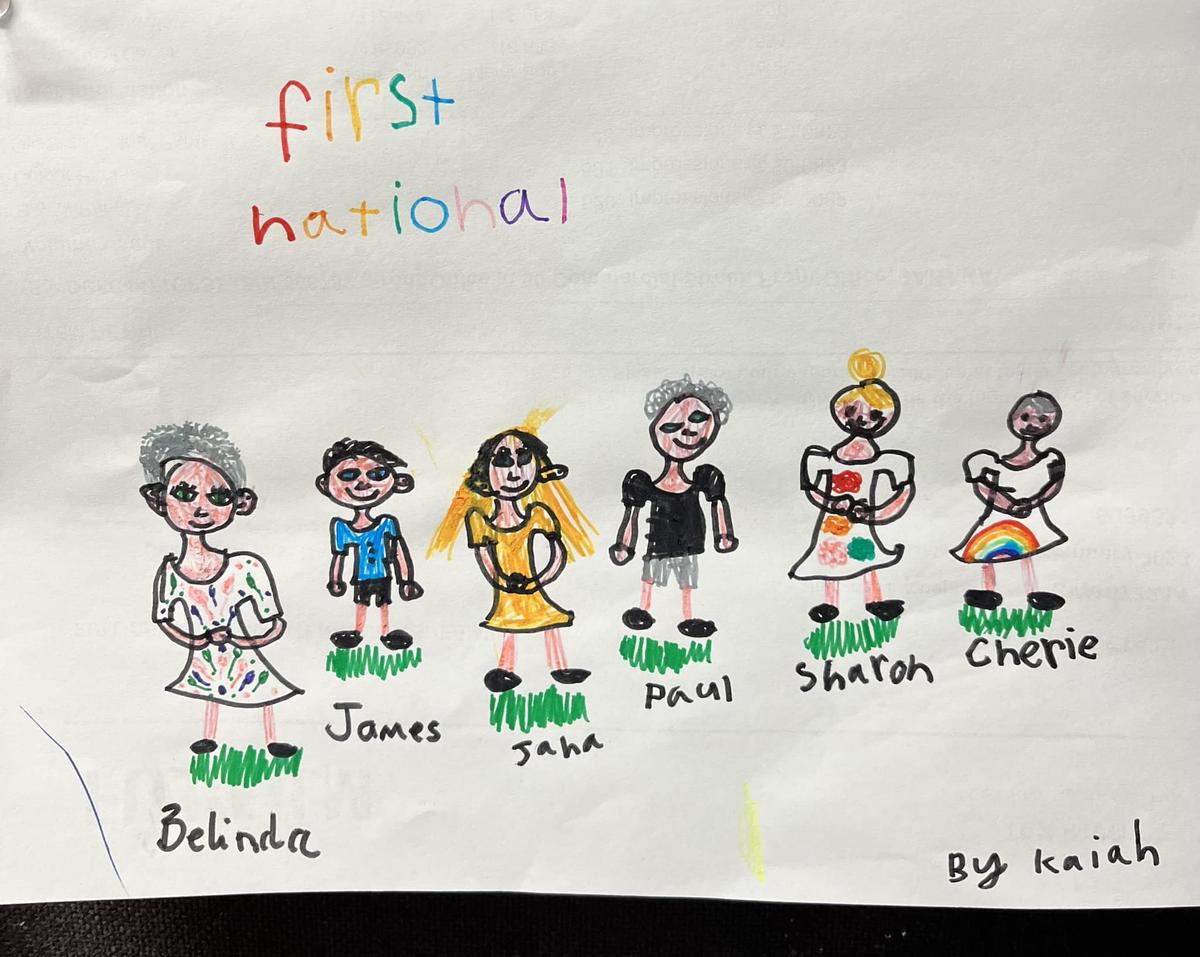 first
national
Belinda
James
Jana
Paul
Sharon
Cherie
By Kaiah